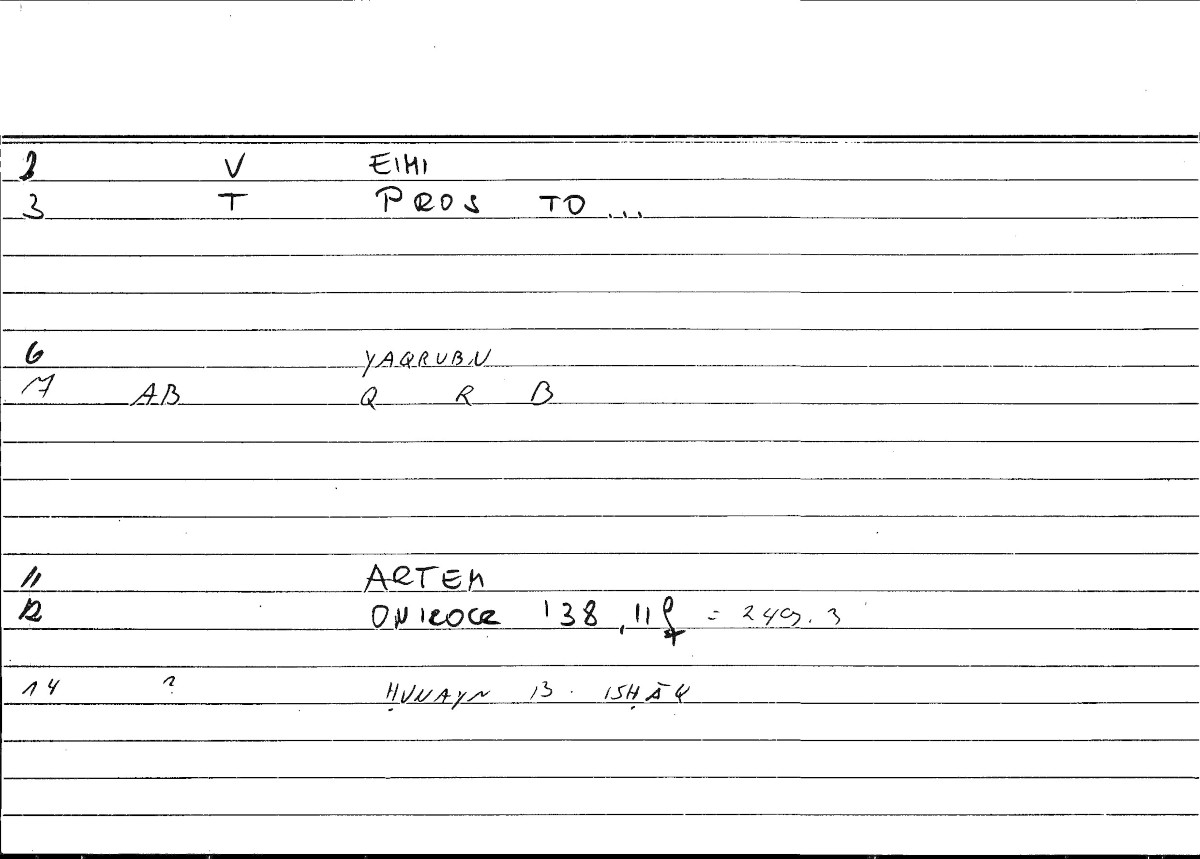 2 V EIMI
3 T PROS TO ...
6 YAQRUBU
7 AB Q R B
11 ARTEM
12 ONIROCR 138,11f = 249,3
14 ? ḤUNAYN B. ISḤĀQ